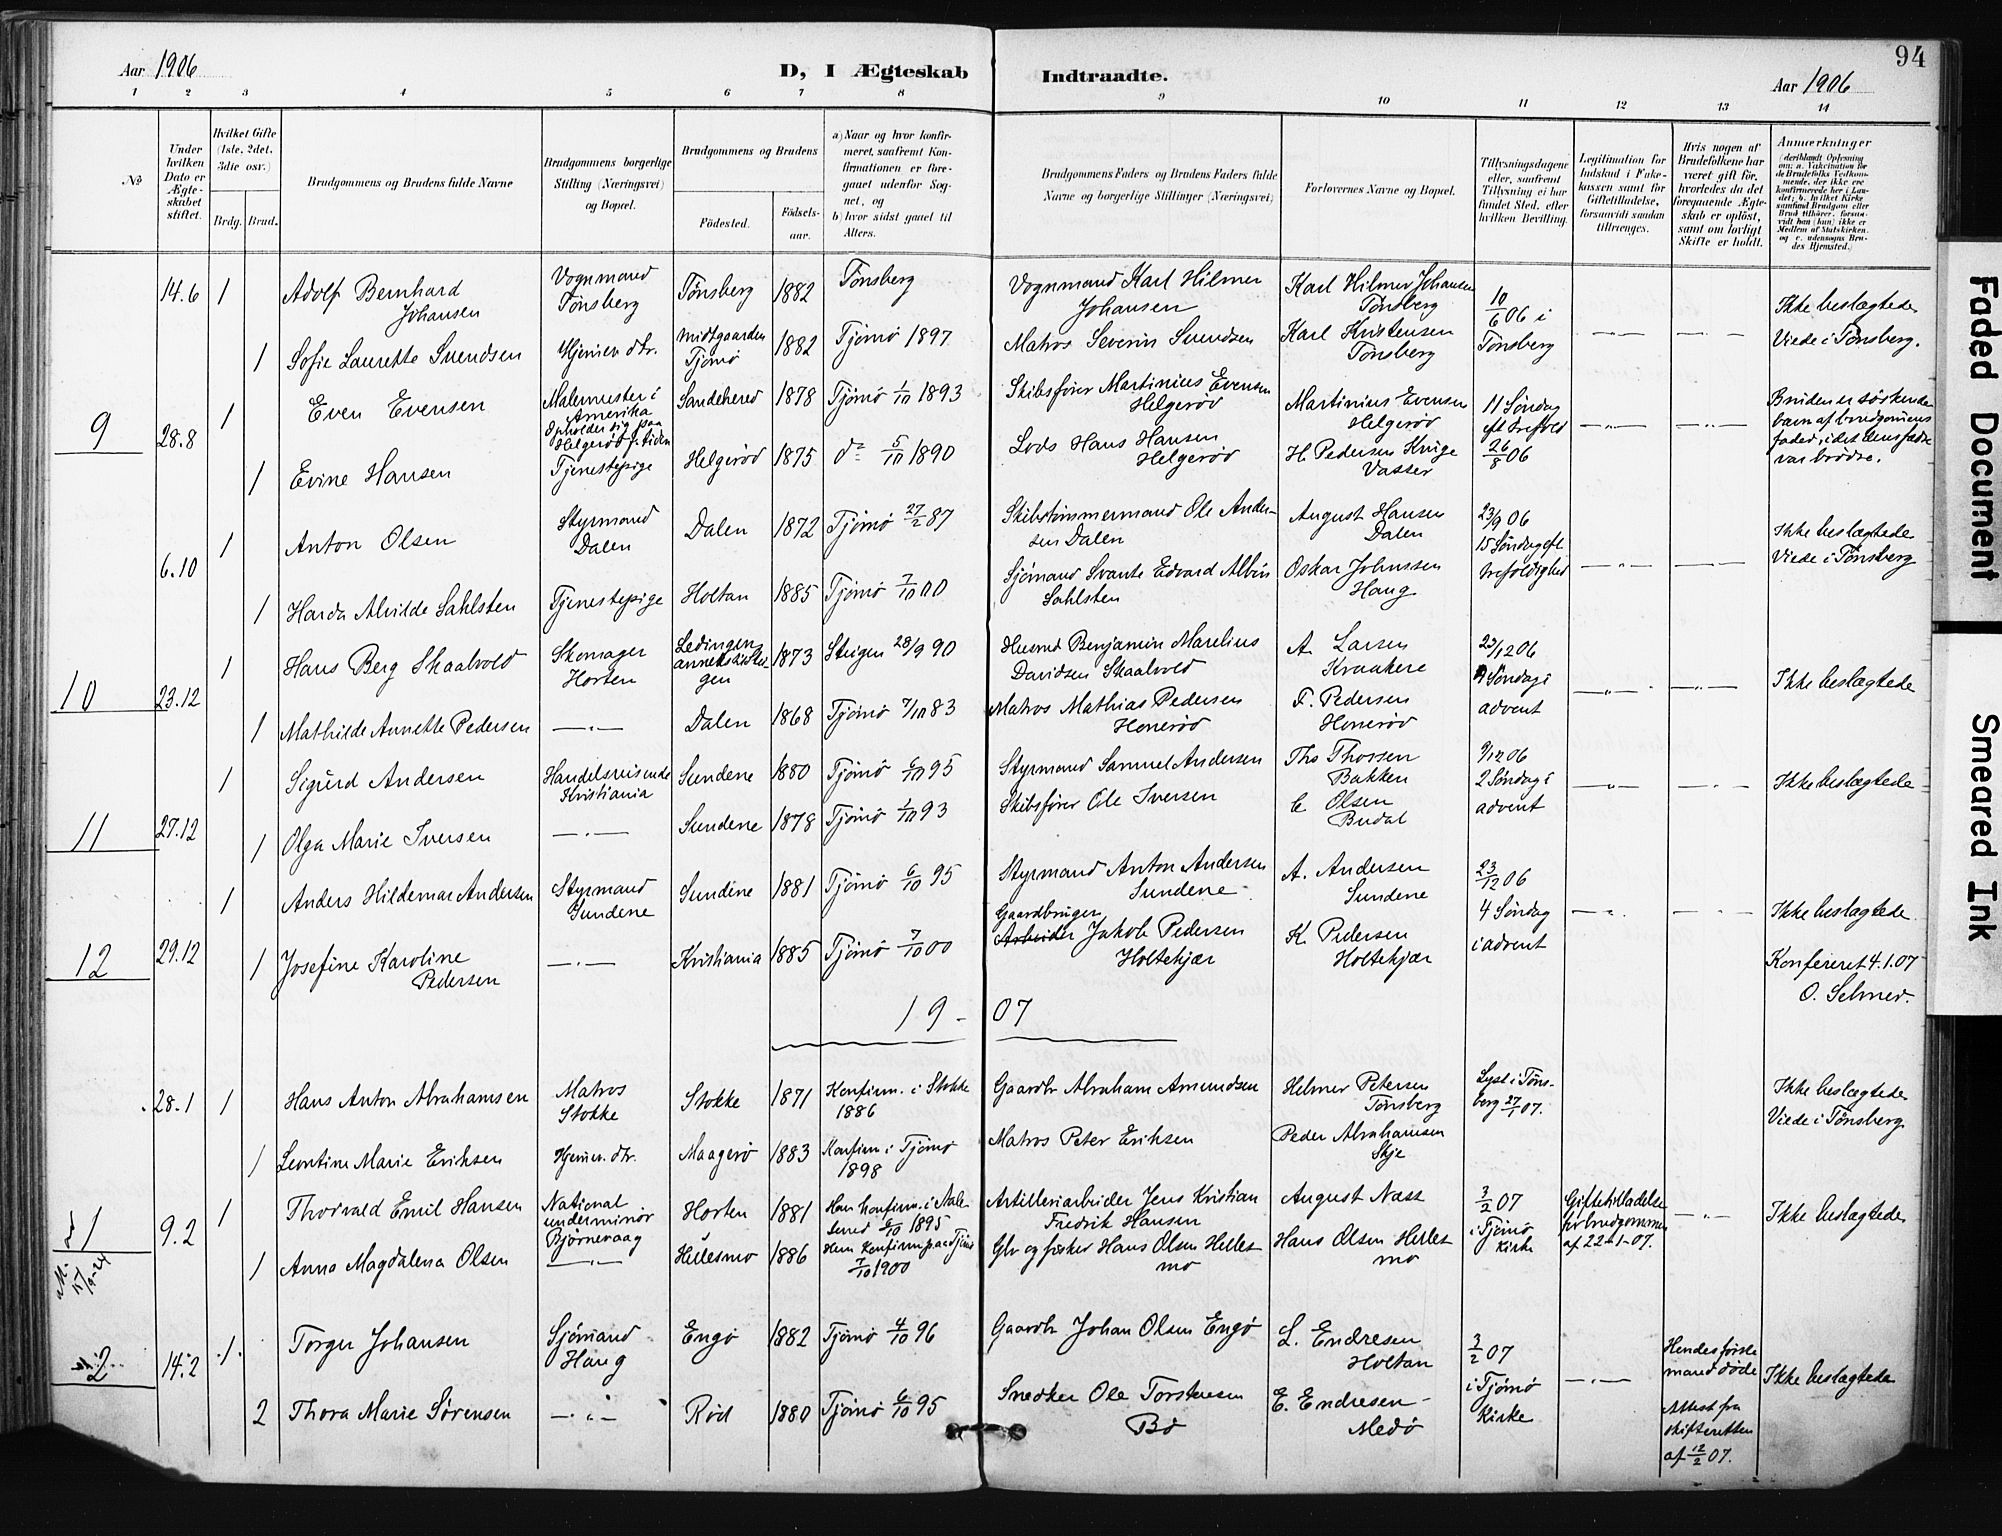 Aar 1906
D, I Ægteskab Indtraadte.
94
Aar 1906
1 2 3 4 5 6 7 8 9 10 11 12 13 14
№
Under hvilken Dato er Ægteskabet stiftet.
Hvilket Gifte (1ste, 2det, 3die osv.)
Brdg. Brud.
Brudgommens og Brudens fulde Navne
Brudgommens borgerlige Stilling (Næringsvei) og Bopæl.
Brudgommens og Brudens
Födested.
Födselsaar.
a) Naar og hvor konfirmeret, saafremt Konfirmationen er foregaaet udenfor Sognet, og
b) hvor sidst gaaet til Alters.
Brudgommens Faders og Brudens Faders fulde Navne og borgerlige Stillinger (Næringsvei)
Forlovernes Navne og Bopæl.
Tillysningsdagene eller, saafremt Tillysning ei har fundet Sted, efter hvilken Bevilling.
Legitimation for Indskud i Enkekassen samt for Giftetilladelse, forsaavidt saadan tiltrænges.
Hvis nogen af Brudefolkene har været gift för, hvorledes da det foregaaende Ægteskab er oplöst, samt om lovligt Skifte er holdt.
Anmærkninger
14.6 1 Adolf Bernhard Johansen
Vognmand Tønsberg
Tønsberg 1882 Tønsberg
Vognmand Karl Hilmer Johansen
Karl Hilmer Johansen Tønsberg
10/6 06 i Tønsberg
Ikke beslægtede
Viede i Tønsberg.
1 Sofie Laurette Svendsen
Hjemev. dtr.
Midtgaarden Tjømø 1882 Tjømø 1897
Matros Severin Svendsen
Karl Kristensen Tønsberg
9 28.8 1 Even Evensen
Malermester i Amerika
Opholder sig paa Helgerød f. tiden
Sandehered 1878 Tjømø 1/10 1893
Skibsfører Martinius Evensen Helgerød
Martinius Evensen Helgerød
11 Søndag eft trefold 26/8 06
Bruden er söskendebarn af brudgommens fader, idet deres fædre var brødre.
1 Evine Hansen
Tjenestepige
Helgerød 1875 do 5/10 1890
Lods Hans Hansen Helgerød
H. Pedersen Kruge Vasser
6.10 1 Anton Olsen
Styrmand Dalen
Dalen 1872 Tjømø 27/2 87
Skibstømmermand Ole Andersen Dalen
August Hansen Dalen
23/9 06
15 Søndag eft trefoldighed
Ikke beslægtede
Viede i Tønsberg
1 Harda Alvilde Sahlsten
Tjenestepige
Holtan 1885 Tjømø 7/10 00
Sjømand Svante Edvard Albin Sahlsten
Oskar Johnssen Haug
10 23.12 1 Hans Berg Skaalvold
Skomager Horten
1873 Steigen 28/9 90
Husmd Benjamin Marelius Davidsen Skaalvold
A. Larsen Kraakere
23/12 06
4 Söndag i advent
Ikke beslægtede
1 Mathilde Annette Pedersen
Dalen 1868 Tjømø 7/10 83
Matros Mathias Pedersen Honerød
F. Pedersen Honerød
11 27.12 1 Sigurd Andersen
Handelsreisende Kristiania
Sundene 1880 Tjømø 6/10 95
Styrmand Samuel Andersen
Ths Thorsen Bakken
9/12 06
2 Søndag i advent
Ikke beslægtede
1 Olga Marie Iversen
Sundene 1878 Tjømø 1/10 93
Skibsfører Ole Iversen
C Olsen Budal
12 29.12 1 Anders Hildemar Andersen
Styrmand Sundene
Sundene 1881 Tjømø 6/10 95
Styrmand Anton Andersen Sundene
A. Andersen Sundene
23/12 06
4 Söndag i advent
Ikke beslægtede
1 Josefine Karoline Pedersen
Kristiania 1885 Tjømø 7/10 00
Gaardbruger
Arbeider Jakob Pedersen Holtekjær
K. Pedersen Holtekjær
Konfereret 4.1.07
O. Selmer.
19 - 07
28.1 1 Hans Anton Abrahamsen
Matros Stokke
Stokke 1871 Konfirm. i Stokke 1886
Gaardbr Abraham Amundsen
Helmer Petersen Tønsberg
Lyst i Tønsberg 27/1 07.
Ikke beslægtede
Viede i Tønsberg
1 Leontine Marie Eriksen
Hjemev. dtr.
Maagerø 1883 Konfirm i Tjømø 1898
Matros Peter Eriksen
Peder Abrahamsen Skje
1 9.2 1 Thorvald Emil Hansen
National underminör Bjørnevaag
Horten 1881
Artilleriarbeider Jens Kristian Fredrik Hansen
August Næss
3/2 07 i Tjømø kirke
Giftetilladelse for brudgommen af 22-1-07.
Ikke beslægtede
1 Anna Magdalena Olsen
Hellesmo 1886 Hun Konfirm. paa Tjømø 7/10 1900
Gbr og fisker Hans Olsen Hellesmo
Hans Olsen Hellesmo
2 14.2 1 Torger Johansen
Sjømand Haug
Engø 1882 Tjømø 4/10 96
Gaardbr Johan Olsen Engø
L. Endresen Holtan
3/2 07 i Tjømø Kirke
Hendes første mand døde
Attest fra skifteretten af 12/2 07.
Ikke beslægtede
2 Thora Marie Sørensen
Rød 1880 Tjømø 6/10 95
Snedker Ole Torstensen Bø
E. Endresen Medø
Faded Document
Smeared Ink